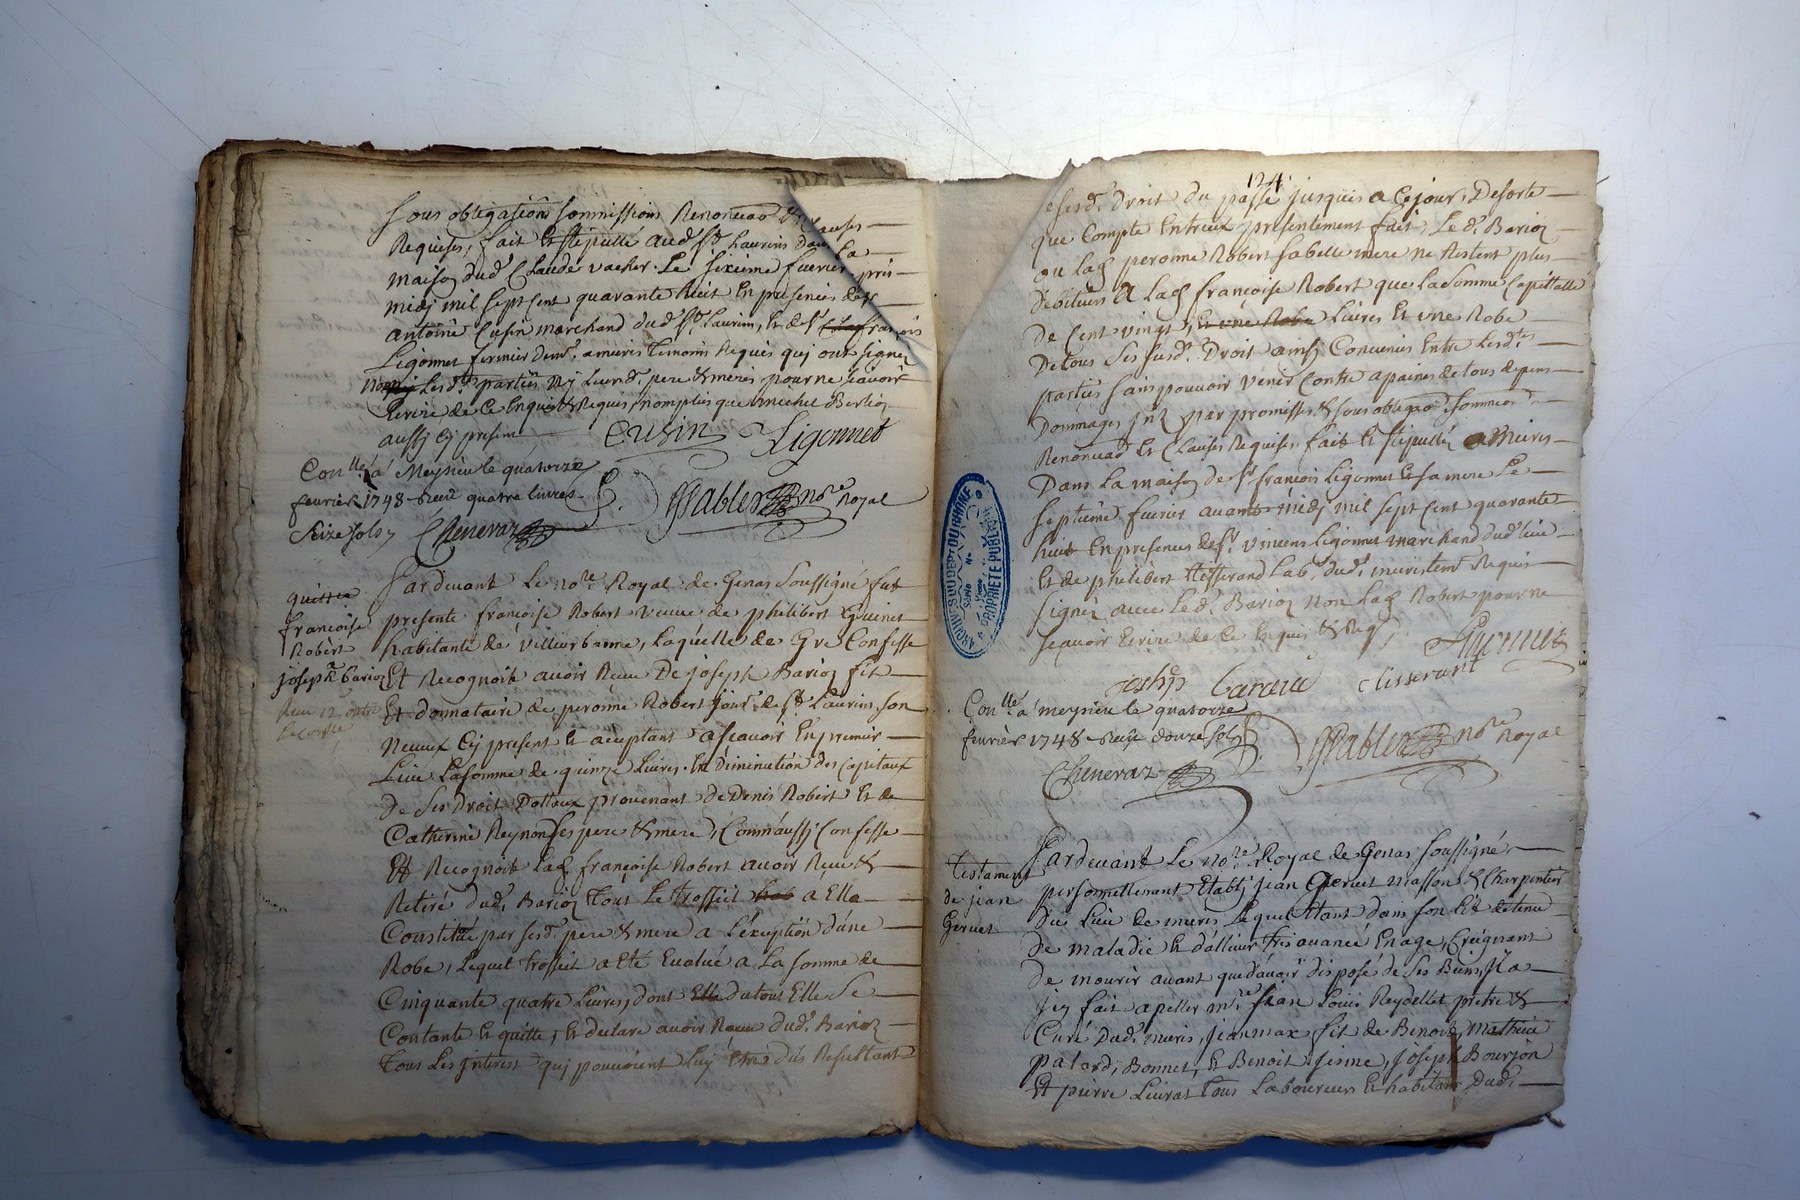 sous obligaõns sommissions Renonciaõ & clauses
Requises, fait et stipullé aud. St. Laurins dans la
maison dud. Claude vacher. Le sixieme fevrier après
midj mil sept cent quarante huit En presences de sr.
antoine Cusin marchand dud. St. Laurins, Et de sr. francois
Ligonnet fermier demt. a mures temoins Requis quj ont signez
non Lesd. parties Nj Leursd. pere & meres pour ne scavoir
Ecrire de Ce Enquis & Requis, nomptes que michel Berlioz
aussj Cy present
Cusin Ligonnet
Conllé. a Meyzieu le quatorze
fevrier 1748 Receu quatre livres
Seize sols Cheneraz
Pablex nore. Royal
quittce
francoise
Robert
joseph Barioz
Pardevant Le nore. Royal de Genas soussigné fut
presente francoise Robert veuve de philibert Guinet
habitante de villeurbanne, laquelle de Gré Confesse
Et Recognoit avoir Receu De joseph Barioz fils
Et donnataire de peronne Robert jour. de St. Laurins son
Neveux Cy present et aceptant a scavoir En premier
Lieu La somme de quinze Livres En diminution des Capitaux
De Ses Droit Dottaux provenant de Denis Robert Et de
Catherine Reynon Ses pere & mere, Comm'aussj Confesse
Et Recognoit Lad. francoise Robert avoir Receu &
Retiré dud. Barioz tout Le trosseit a Elle
Constitué par sesd. pere & mere a l'exception d'une
Robe, Lequel trosseit a Eté Evalué a La somme de
Cinquante quatre Livres, dont du tout Elle Se
Contante et quitte, et declare avoir Receu dud. Barioz
tous Les jnterest quj pouvoient Luy être dûs Resultant
124.
de sesd. Droit du passé jusques a Ce jour, De sorte
que Compte Entreux presentement fait, Le d. Barioz
ou Lad. peronne Robert sa belle mere ne Restent plus
Debiteurs A Lad. françoise Robert que La Somme Capittalle
De Cent vingt Livres Et une Robe
De tous Ses susd. Droit ainsj Convenus Entre Lesd.
parties sans pouvoir venir Contre a paines de tous depens
Dommages jnz. par promisses & sous obligaõ. sommions.
Renonciaõ Et Clauses Requises, fait Et stipullé a Mures
Dans La maison de sr. francois Ligonnet Et sa mere Le
septieme fevrier avant midj mil sept Cent quarante
huit En presences de sr. vincens Ligonnet marchand dud. lieu
Et de philibert tisserand Labr. dud. mures temt. Requis
signez avec Le d. Barioz non Lad. Robert pour ne
scavoir Ecrire de Ce Enquis & Reqs.
Ligonnet
tisserant
Conllé. a meyzieu le quatorze
fevrier 1748 Receu douze sols
Cheneraz
Pablex nore. Royal
Testament
de jean
Gervet
Pardevant Le nore. Royal de Genas soussigné
personnellement Etablj jean Gervet masson & Charpentier
Du Lieu de mures Lequel Etant dans son Lit detenu
De maladie Et d'allieur tres avancé En age, Creignant
De mourir avant que d'avoir disposé de Ses Biens, jl a
jcy fait apeller mre. jean Louis Reydellet prêtre &
Curé Dud. mures, jean max fils de Benoit, Mathieu
Palard, Bonnet, Et Benoit Jeune, joseph Bourjon
Et pierre Livrat tous Laboureurs Et habitans Dud.
ARCHIVES DU DEPT DU RHONE
PROPRIETE PUBLIQUE